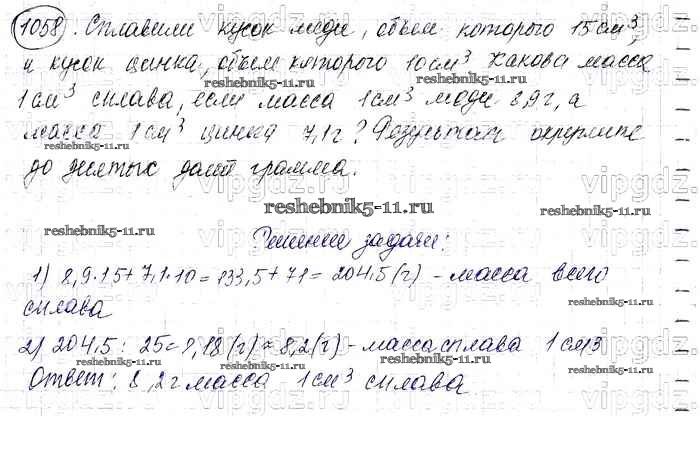 1058. Сплавили кусок меди, объем которого 15 см³,
и кусок цинка, объем которого 10 см³. Какова масса
1 см³ сплава, если масса 1 см³ меди 8,9 г, а
масса 1 см³ цинка 7,1 г? Результат округлите
до десятых долей грамма.
Решение задачи:
1) 8,9·15+7,1·10=133,5+71=204,5(г) - масса всего
сплава
2) 204,5:25=8,18(г)≈8,2(г) - масса сплава 1 см3
Ответ: 8,2г масса 1 см³ сплава
reshebnik5-11.ru
vipgdz.ru